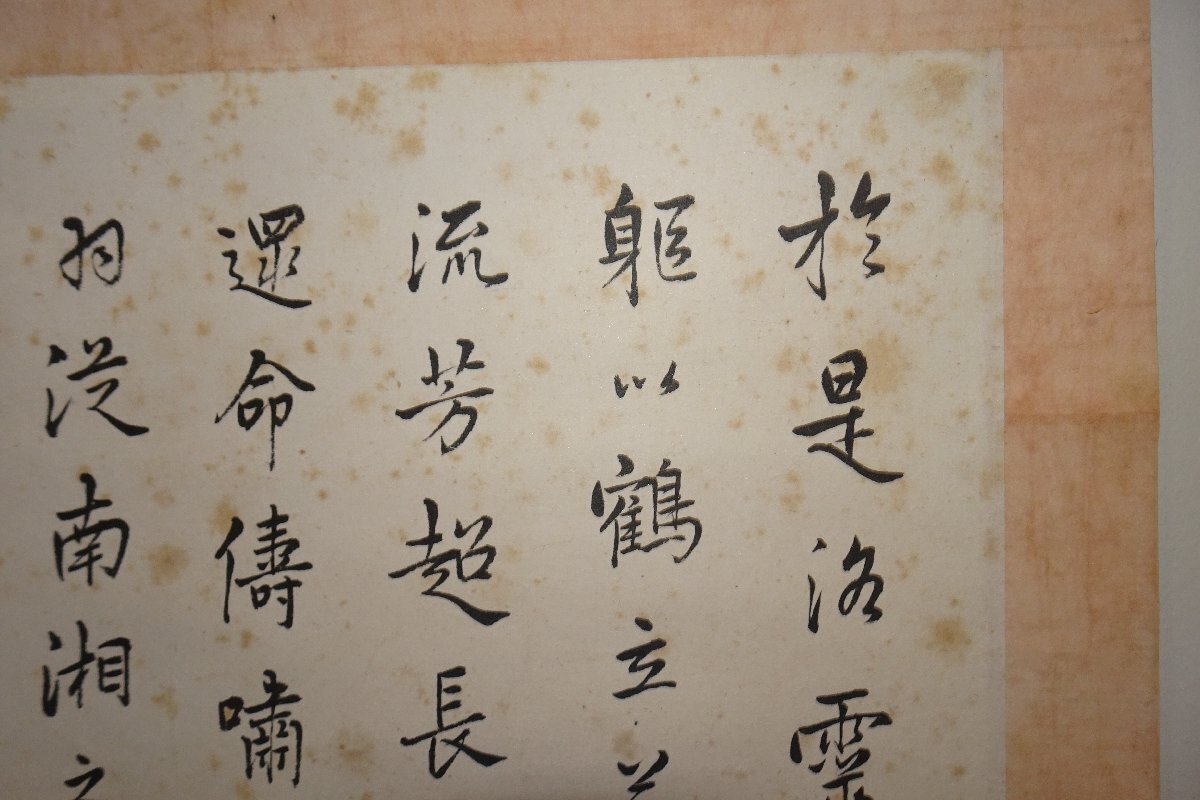 於是洛靈
軀以鶴立
流芳超長
遝命儔嘯
羽從南湘